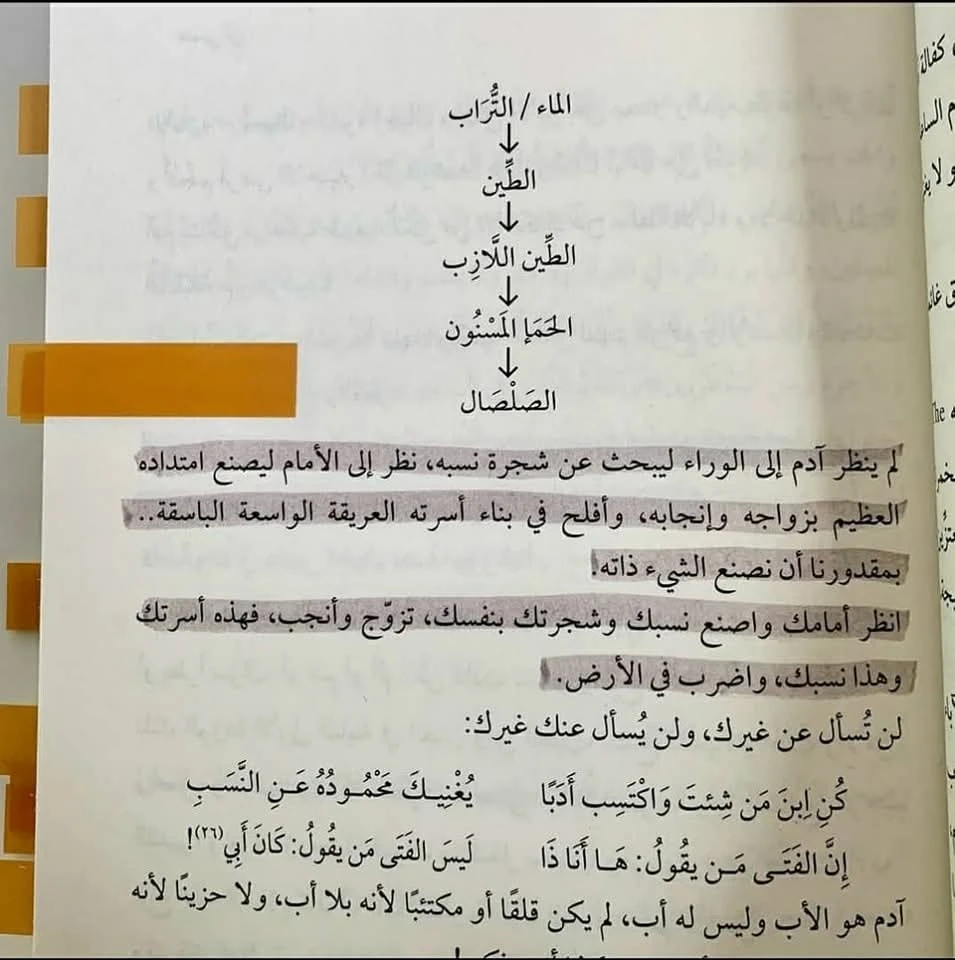 الماء / التُّرَاب
↓
الطِّين
↓
الطِّين اللَّازِب
↓
الحَمَإ المَسْنُون
↓
الصَلْصَال
لم ينظر آدم إلى الوراء ليبحث عن شجرة نسبه، نظر إلى الأمام ليصنع امتداده
العظيم بزواجه وإنجابه، وأفلح في بناء أسرته العريقة الواسعة الباسقة..
بمقدورنا أن نصنع الشيء ذاته!
انظر أمامك واصنع نسبك وشجرتك بنفسك، تزوّج وأنجب، فهذه أسرتك
وهذا نسبك، واضرب في الأرض.
لن تُسأل عن غيرك، ولن يُسأل عنك غيرك:
كُنِ اِبنَ مَن شِئتَ وَاكْتَسِب أَدَبًا يُغْنِيكَ مَحْمُودُهُ عَنِ النَّسَبِ
إِنَّ الفَتَى مَن يقُولُ: هَا أَنَا ذَا لَيسَ الفَتَى مَن يقُولُ: كَانَ أَبِي(٢٦)!
آدم هو الأب وليس له أب، لم يكن قلقًا أو مكتئبًا لأنه بلا أب، ولا حزينًا لأنه
كفالة